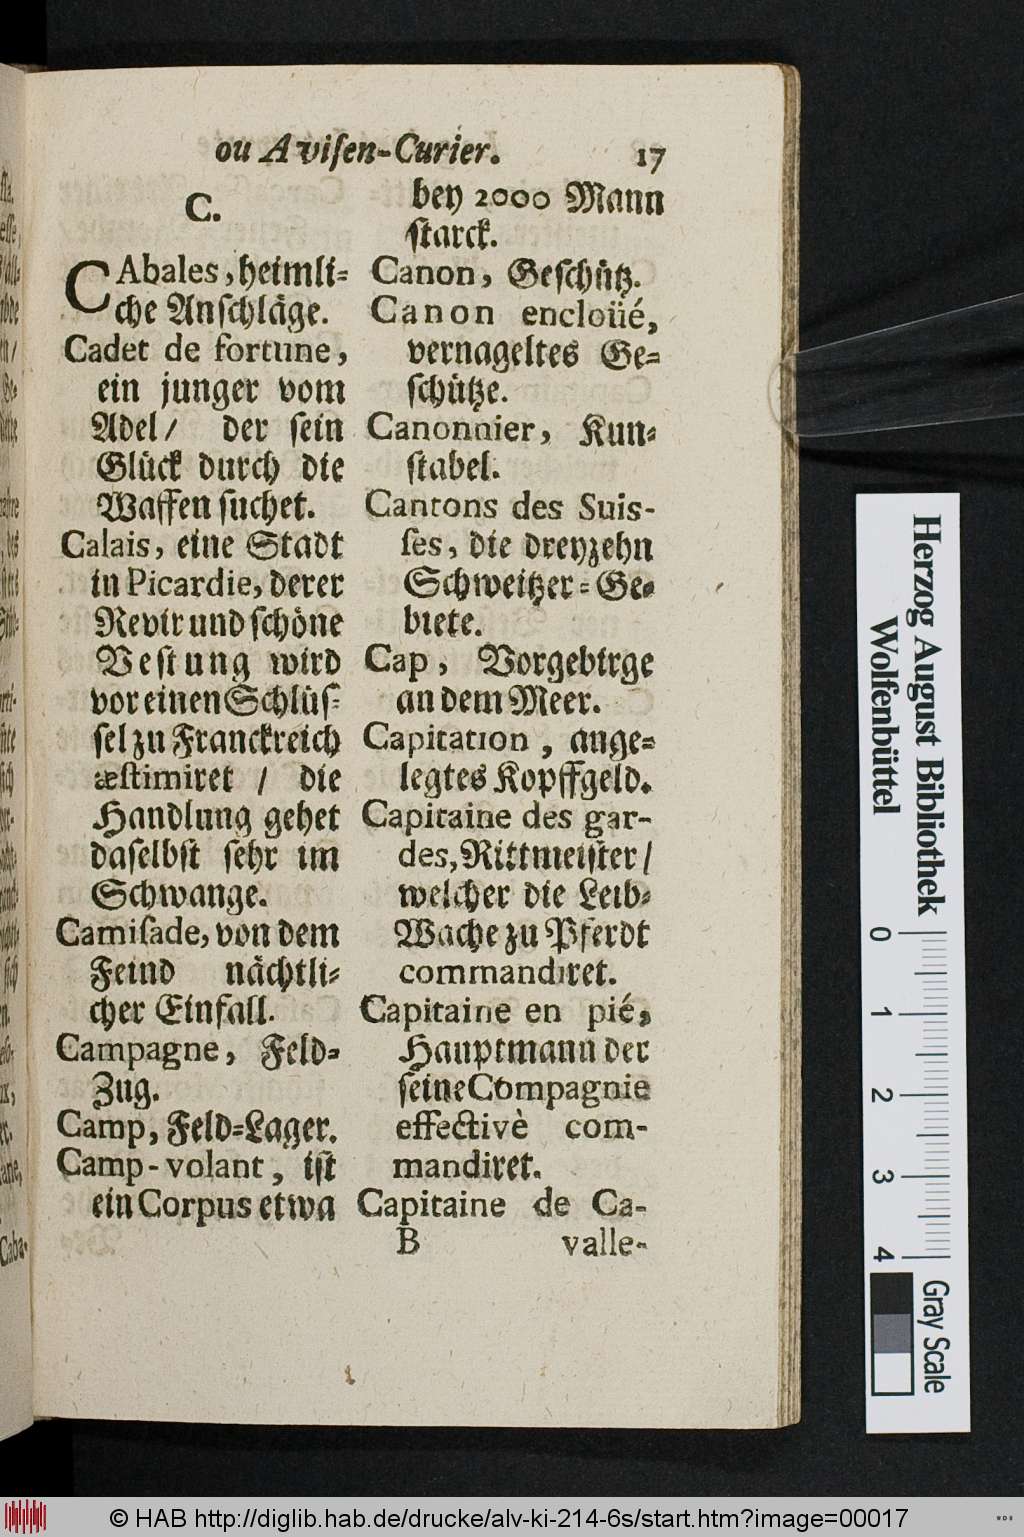 ou Aviſen-Curier. 17
C.
CAbales, heimli-
che Anſchläge.
Cadet de fortune,
ein junger vom
Adel / der ſein
Glück durch die
Waffen ſuchet.
Calais, eine Stadt
in Picardie, derer
Revir und ſchöne
Veſtung wird
vor einen Schlüſ-
ſel zu Franckreich
æſtimiret / die
Handlung gehet
daſelbſt ſehr im
Schwange.
Camiſade, von dem
Feind nächtli-
cher Einfall.
Campagne, Feld-
Zug.
Camp, Feld-Lager.
Camp-volant, iſt
ein Corpus etwa
bey 2000 Mann
ſtarck.
Canon, Geſchütz.
Canon encloüé,
vernageltes Ge-
ſchütze.
Canonnier, Kun-
ſtabel.
Cantons des Suis-
ſes, die dreyzehn
Schweitzer-Ge-
biete.
Cap, Vorgebirge
an dem Meer.
Capitation, ange-
legtes Kopffgeld.
Capitaine des gar-
des, Rittmeiſter /
welcher die Leib-
Wache zu Pferdt
commandiret.
Capitaine en pié,
Hauptmann der
ſeine Compagnie
effectivè com-
mandiret.
Capitaine de Ca-
B valle-
Herzog August Bibliothek
Wolfenbüttel
0 1 2 3 4
Gray Scale
© HAB http://diglib.hab.de/drucke/alv-ki-214-6s/start.htm?image=00017